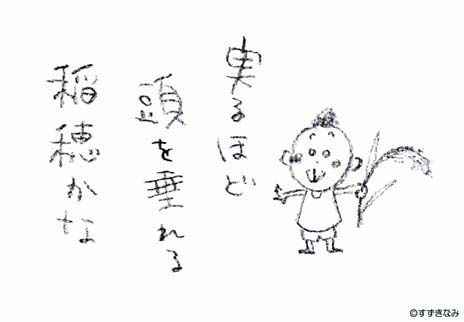 実るほど
頭を垂れる
稲穂かな
©すずきなみ